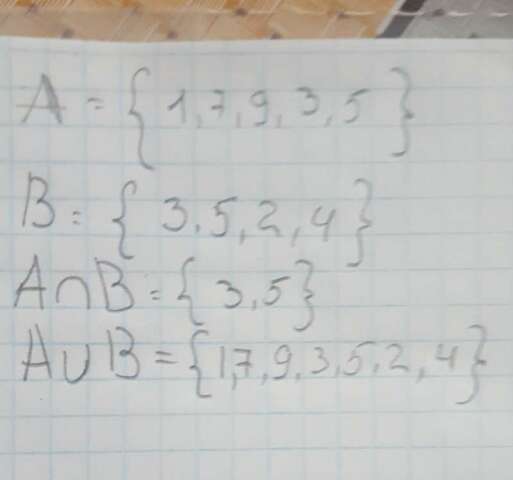 A = { 1, 7, 9, 3, 5 }
B = { 3, 5, 2, 4 }
A∩B = { 3, 5 }
A∪B = { 1, 7, 9, 3, 5, 2, 4 }